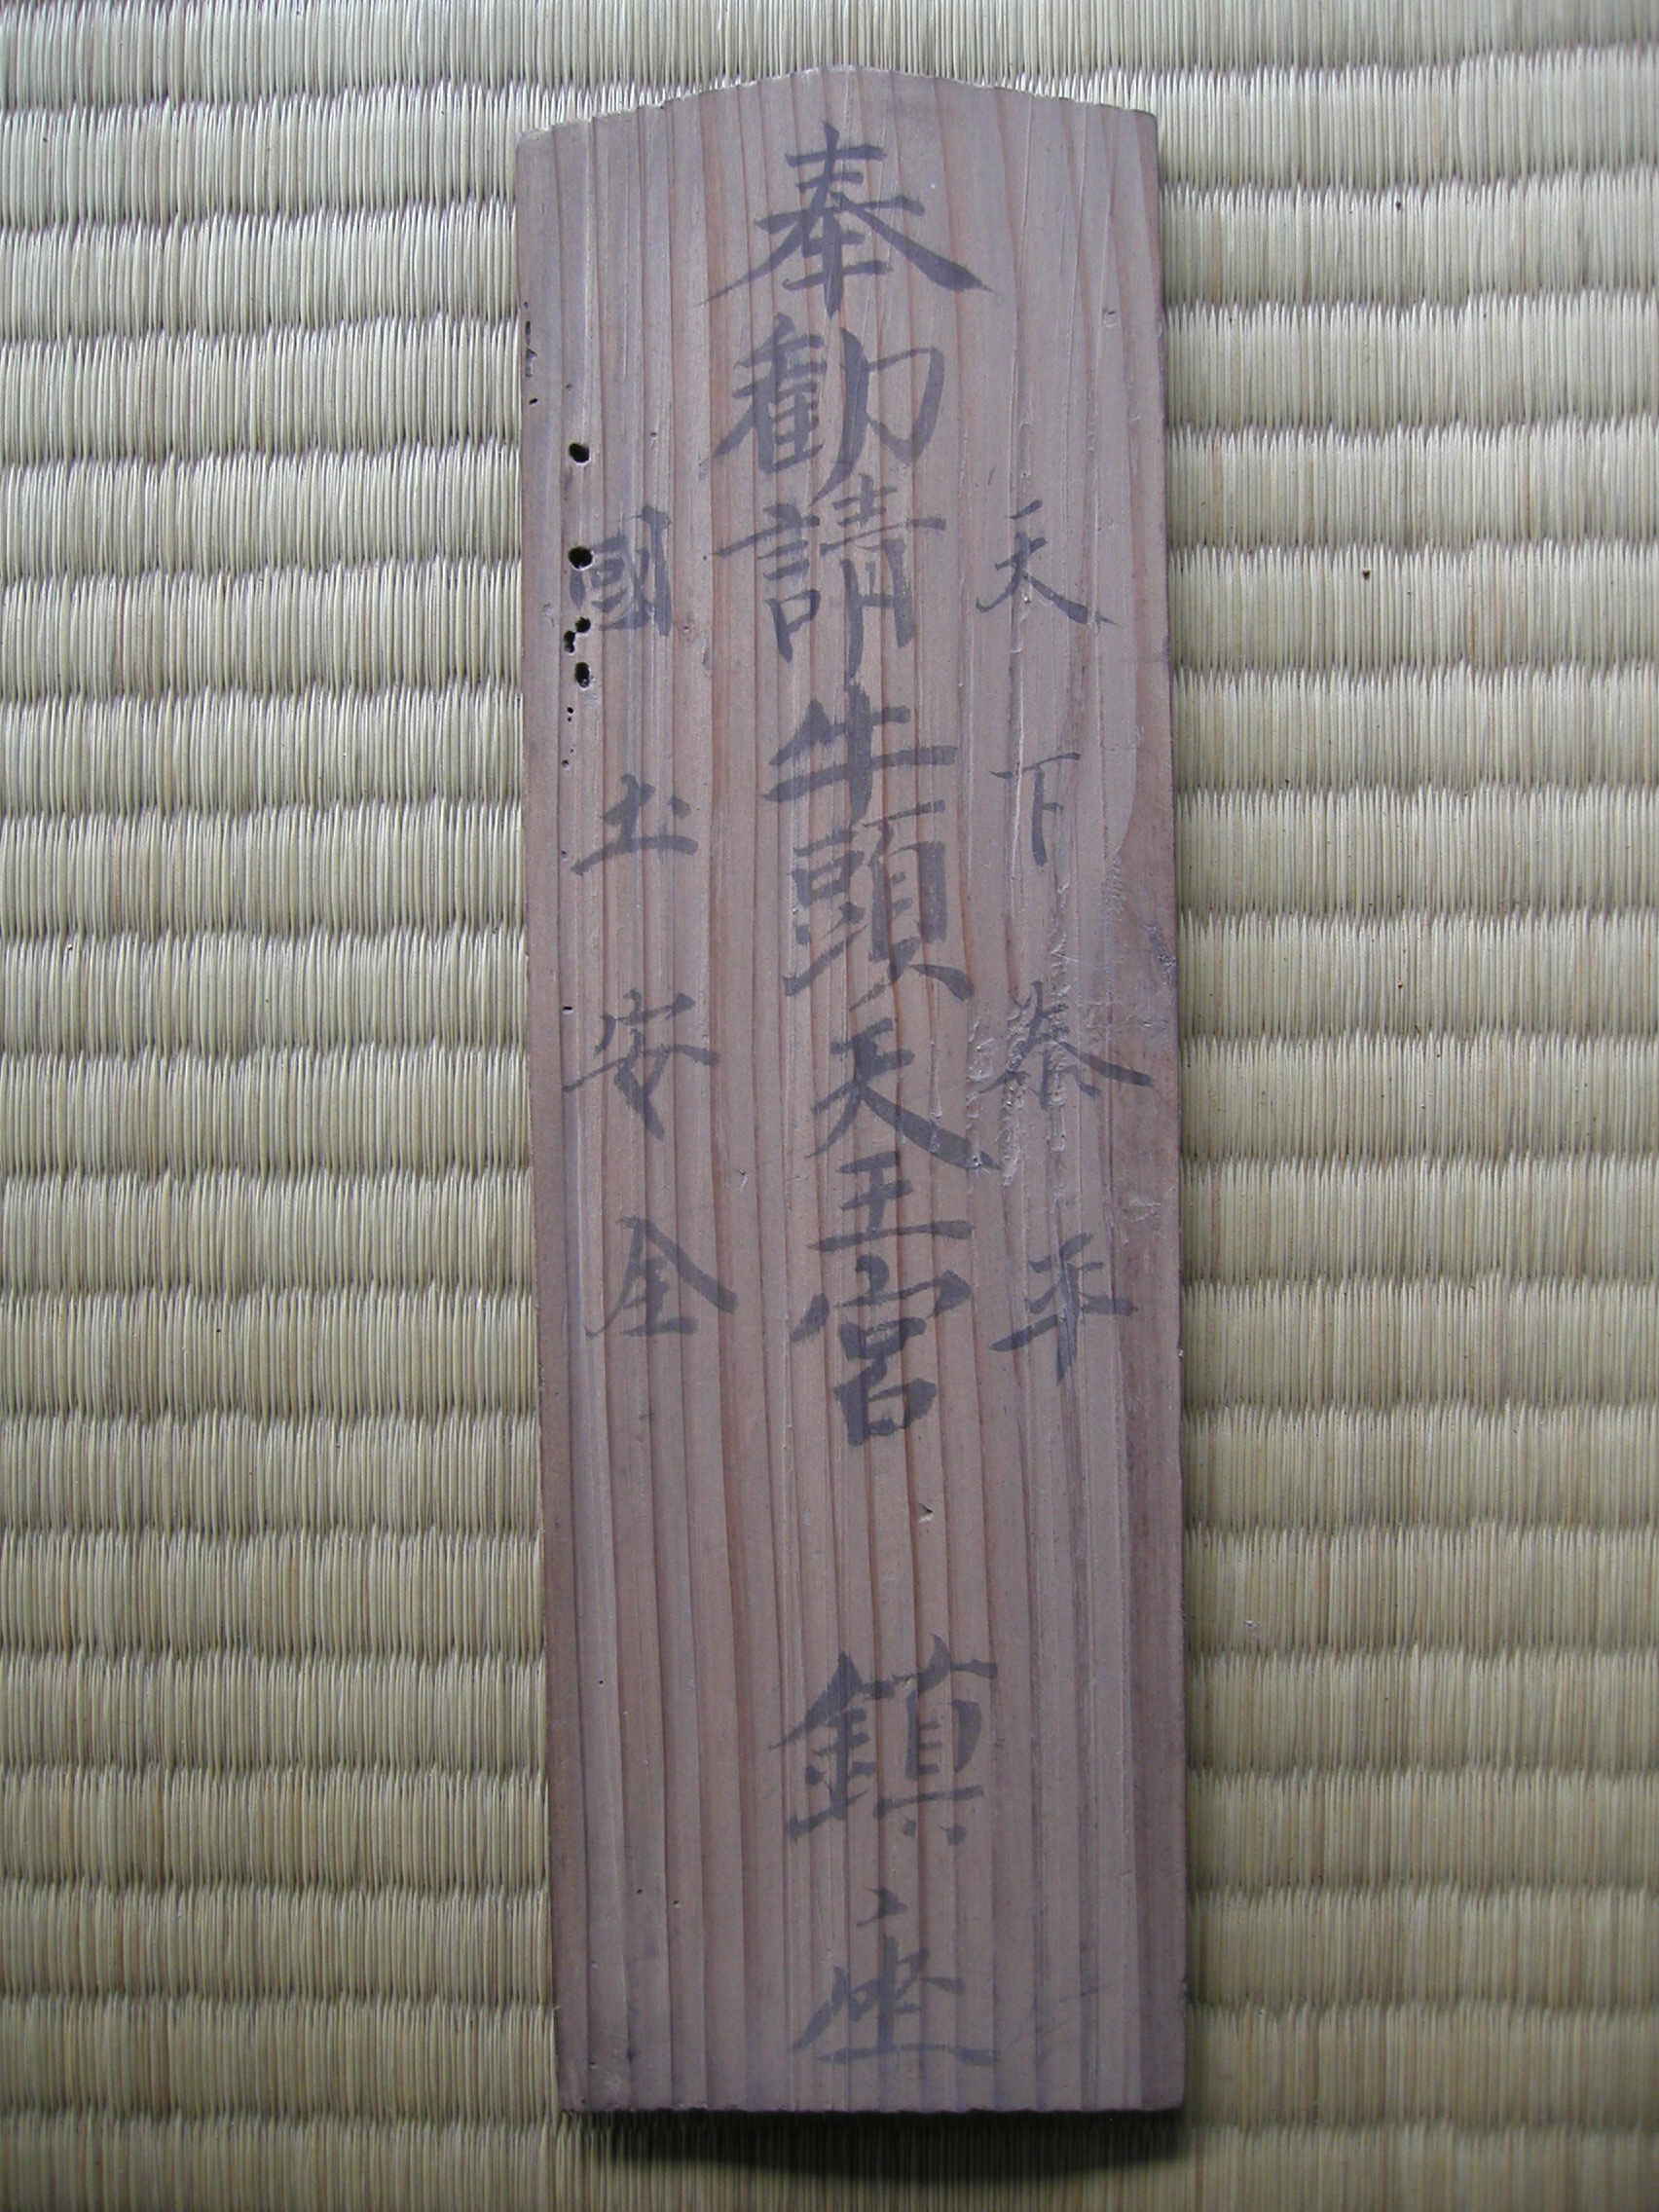 天下泰平
奉勸請牛頭天王宮 鎮座
國土安全